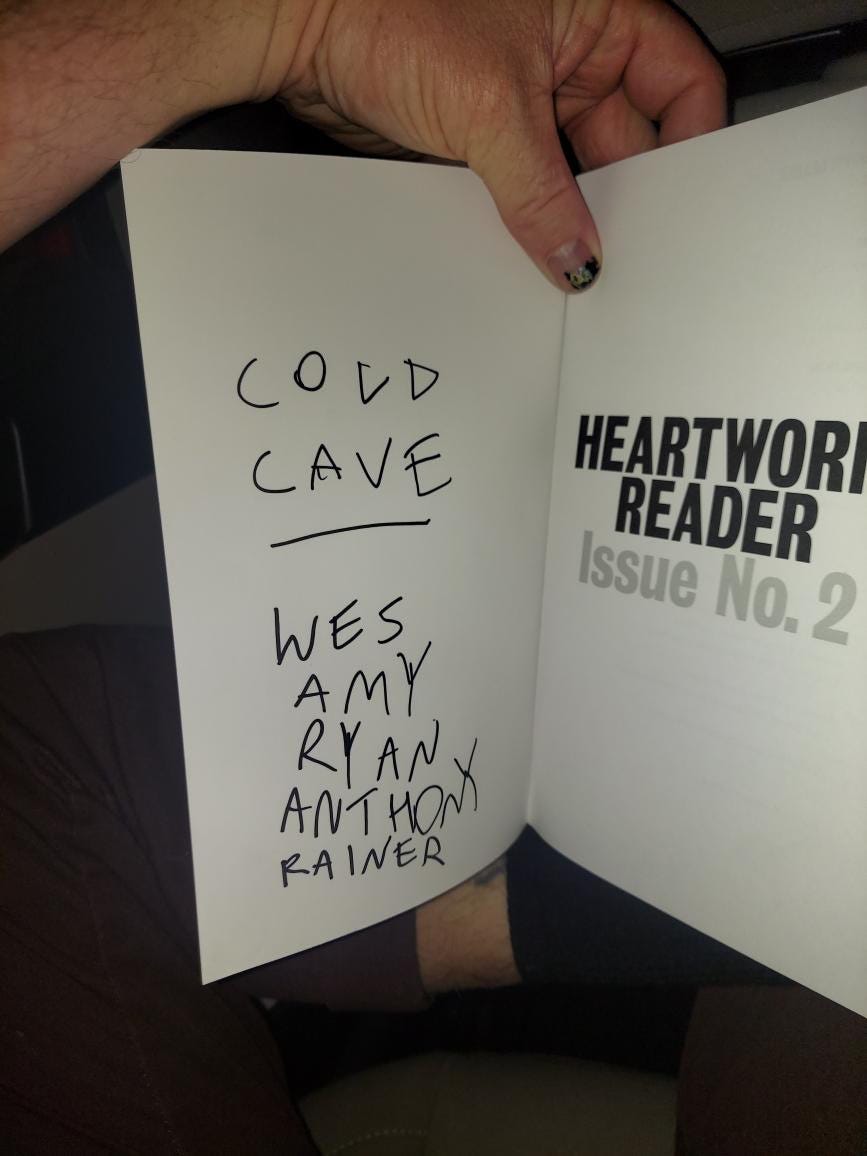 COLD
CAVE
WES
AMY
RYAN
ANTHONY
RAINER
HEARTWOR
READER
Issue No. 2